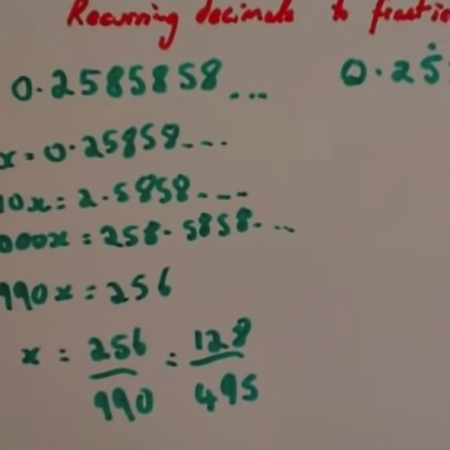 Recurring decimals to fractio
0.2585858... 0.25̇
x = 0.25859...
10x = 2.5858...
000x = 258.5858...
990x = 256
x = 256/990 = 128/495